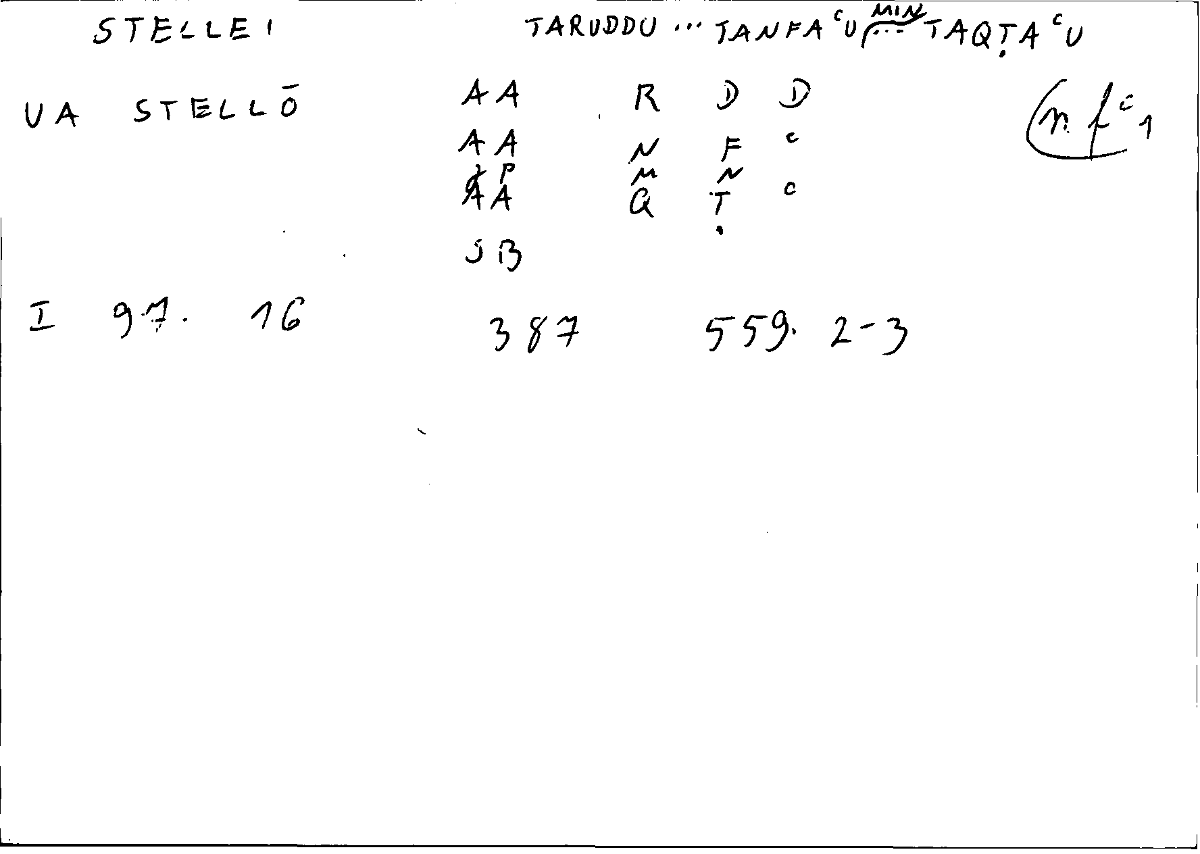 STELLEI TARUDDU ... TANFAᶜU MIN ... TAQṬAᶜU
UA STELLŌ AA R D D n fᶜ 1
AA N F ᶜ
P M N
AA Q Ṭ ᶜ
JB
I 97. 16 387 559. 2-3